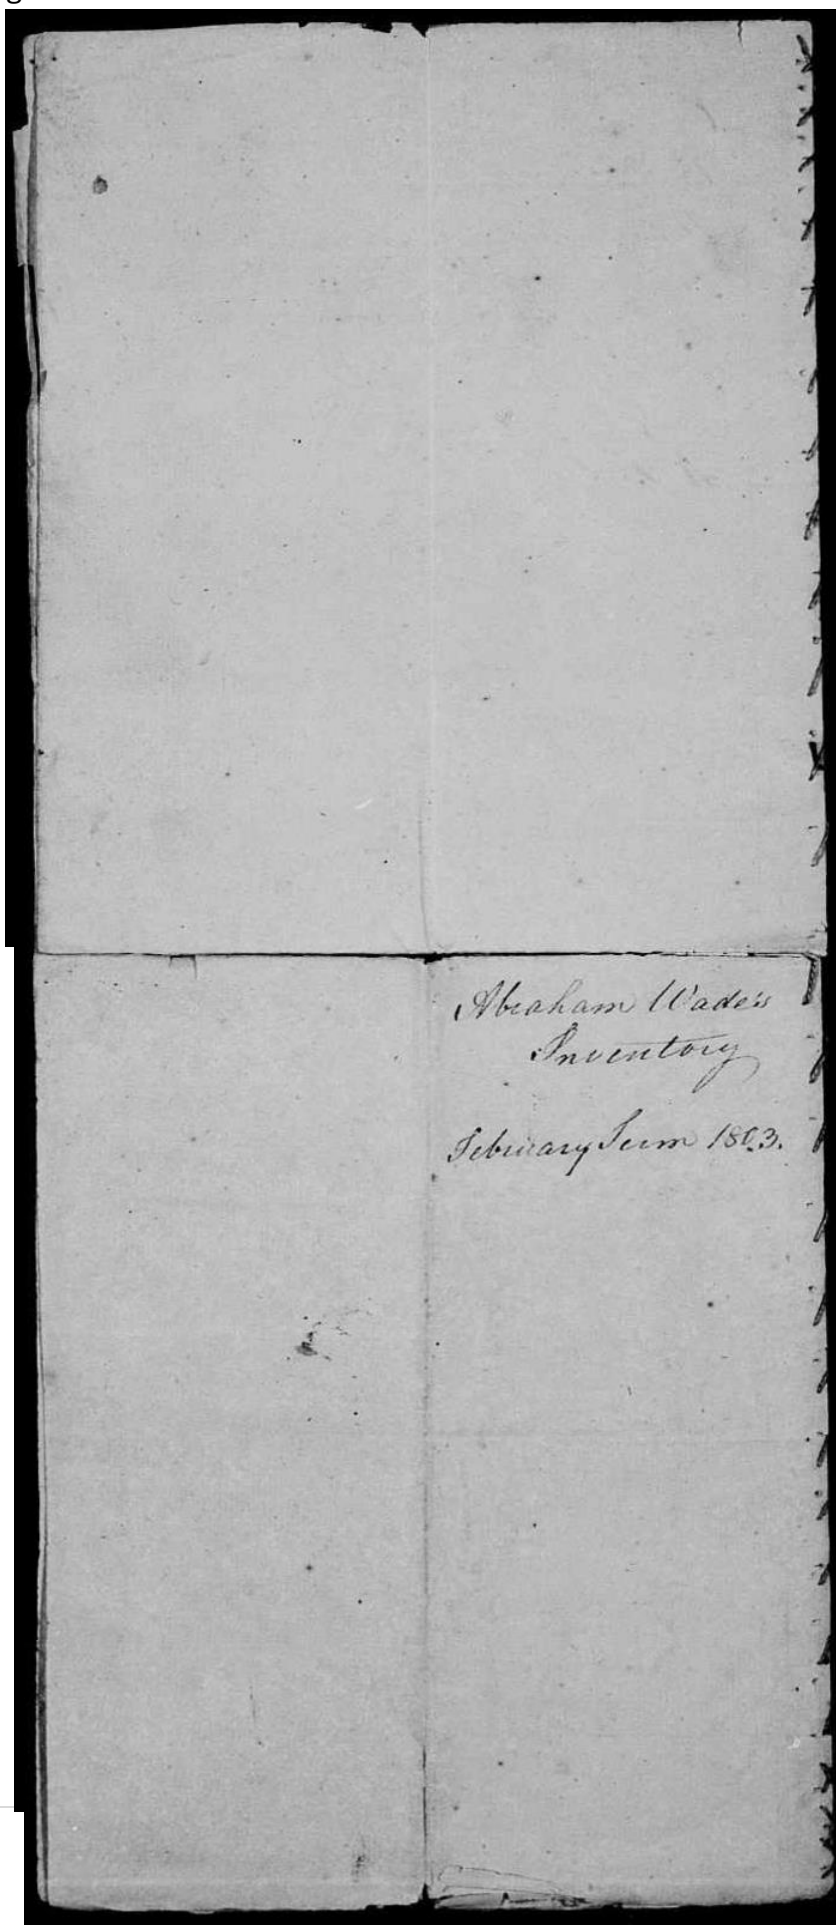 Abraham Wade's
Inventory
February Term 1803.